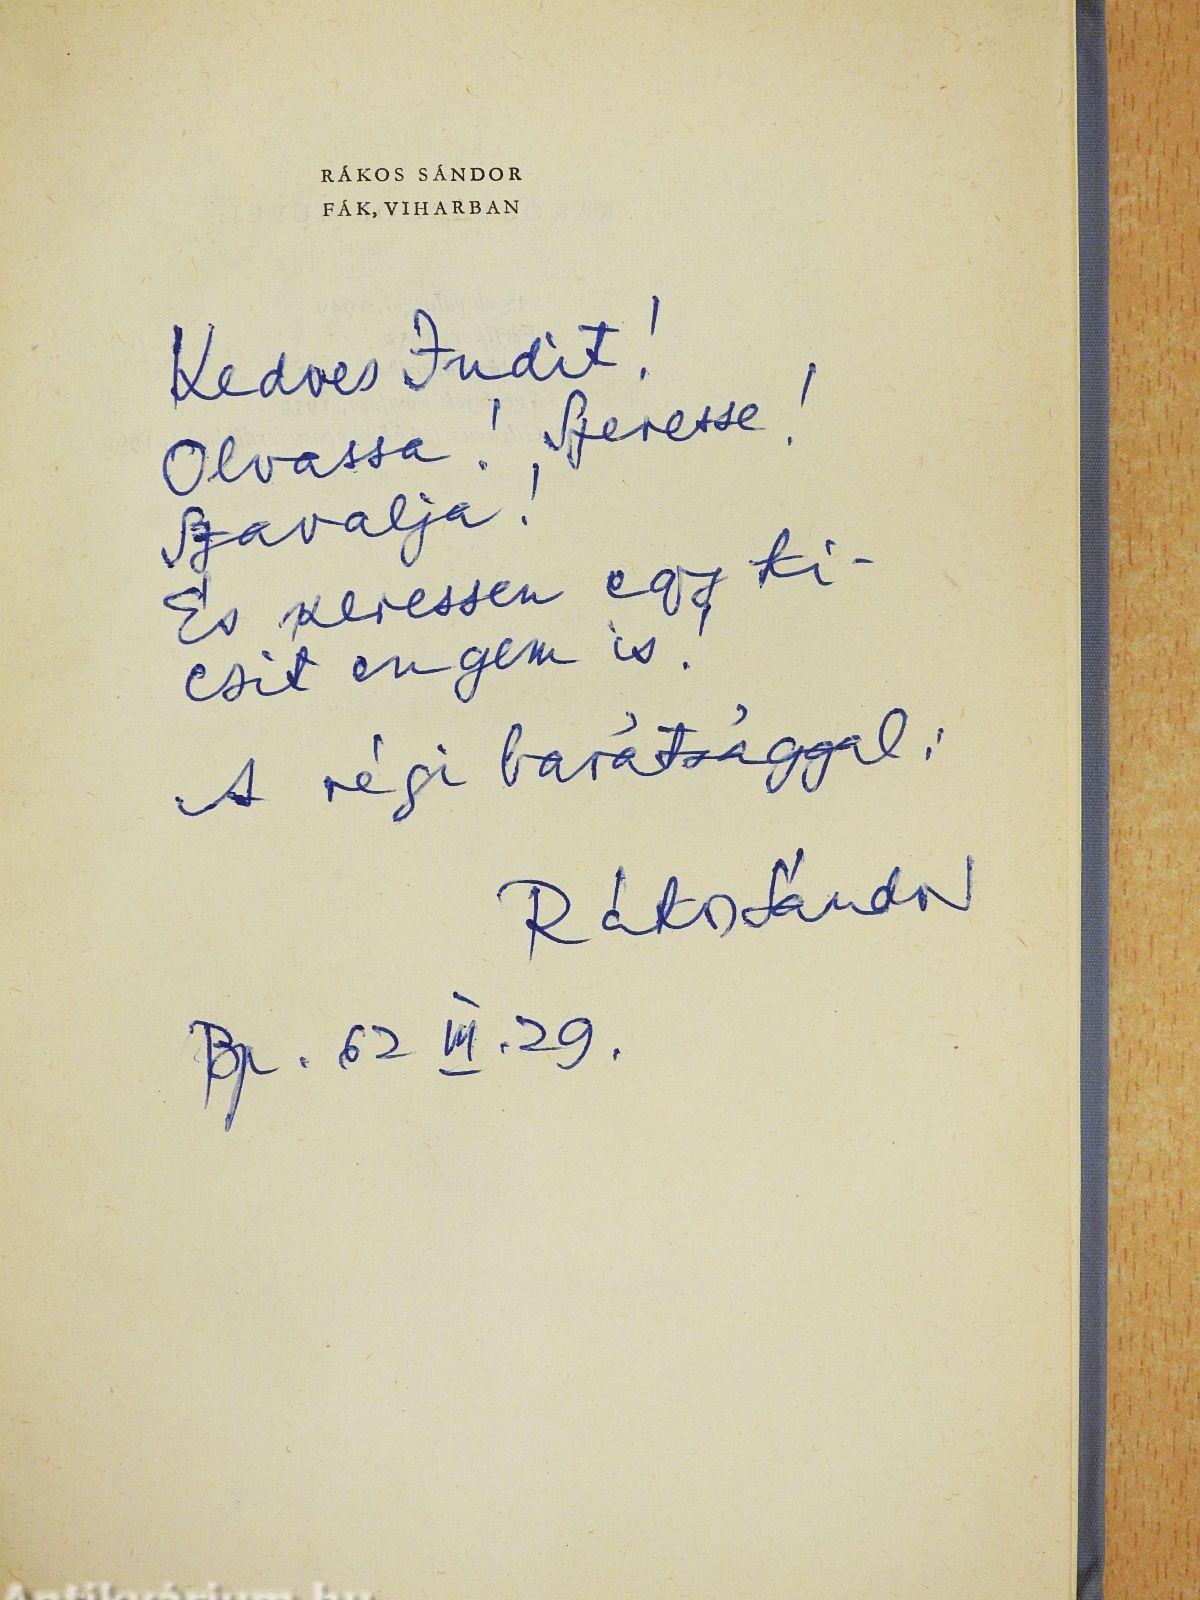 RÁKOS SÁNDOR
FÁK, VIHARBAN
Kedves Judit!
Olvassa! Szeresse!
Szavalja!
És keressen egy ki-
csit engem is!
A régi barátsággal:
Rákos Sándor
Bp. 62 III. 29.
Antikvárium.hu